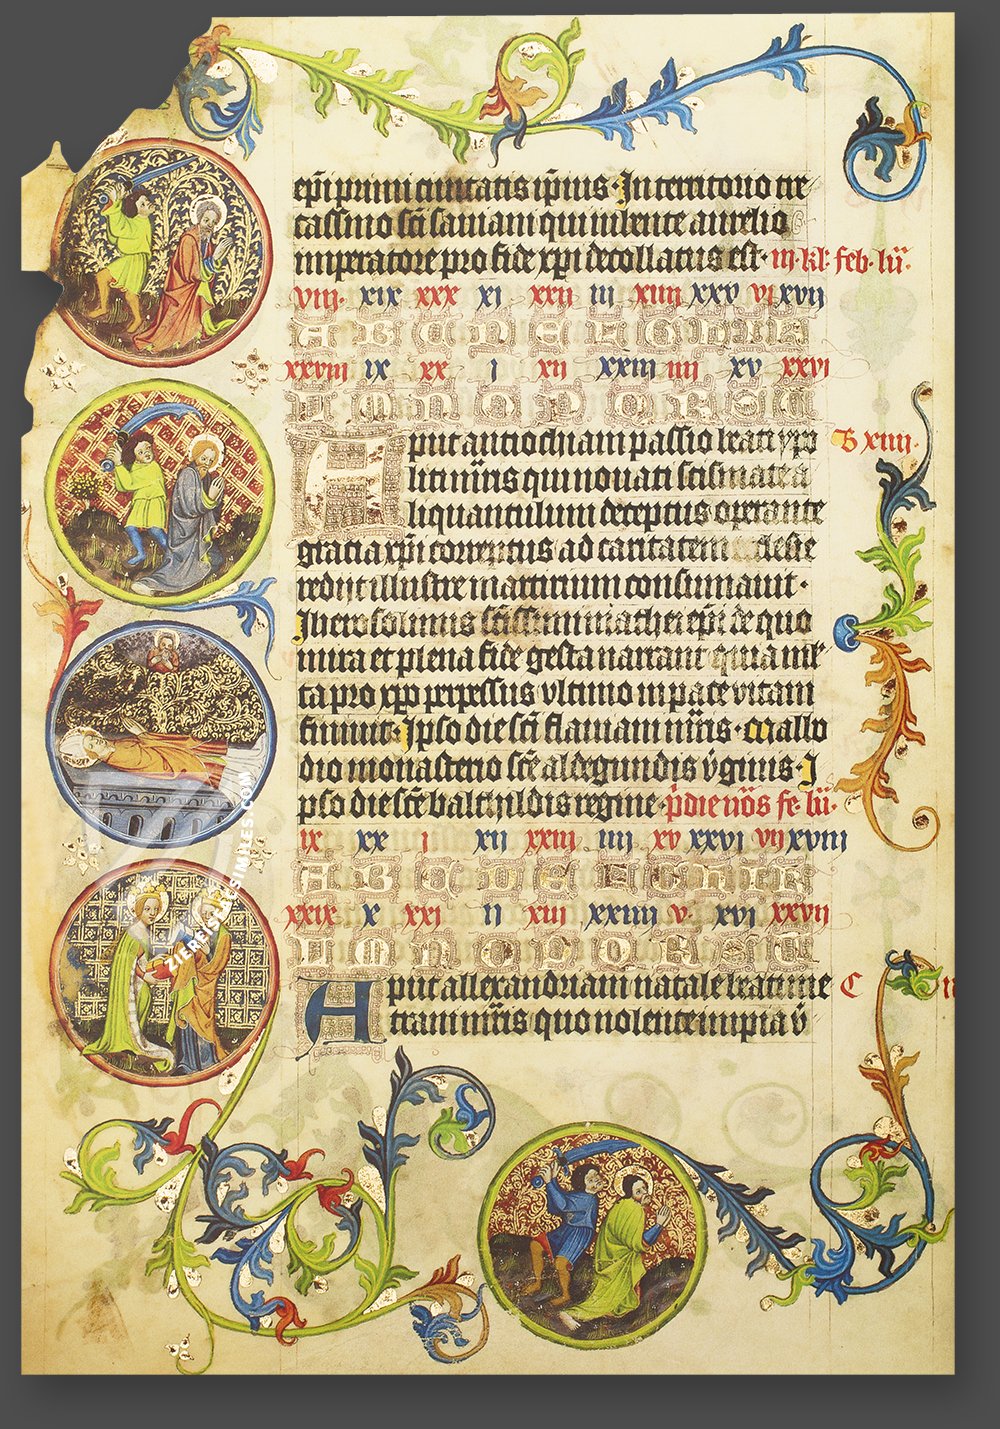 ep̄i primi ciuitatis ip̄ius · In territorio tre
cassino sc̄i sauiani qui iubente aurelio
imperatore pro fide xp̄i decollatus est · iii · kl' feb · lū ·
viii · xix xxx xi xxii iii xiiii xxv vi xvii
A B C D E F G H I K
xxviii ix xx i xii xxiii iiii xv xxvi
L M N O P Q R S T U
Aput antiochiam passio beati ypo B xiiii ·
liti mr̄is qui nouati scismate a
liquantulum deceptus operante
gratia xp̄i correptus ad caritatem ecclesie
redijt illustre martirium consumauit ·
Iherosolimis sc̄issimi mathei ep̄i de quo
mira et plena fide gesta narrant quia ml
ta pro xp̄o perpessus vltimo in pace vitam
finiuit · Ipso die sc̄i flauiani mr̄is · Mallo
dio monasterio sc̄e aldegundis v̄ginis · I
pso die sc̄e balthildis regine · p̄die nōs fe · lū ·
ix xx i xii xxiii iiii xv xxvi vii xviii
A B C D E F G H I K
xxix x xxi ii xiii xxiiii v · xvi xxvii
L M N O P Q R S T U
Aput allexandriam natale beati me C
trani mr̄is quo nolente impia v̄
ZIEREISFACSIMILES.COM